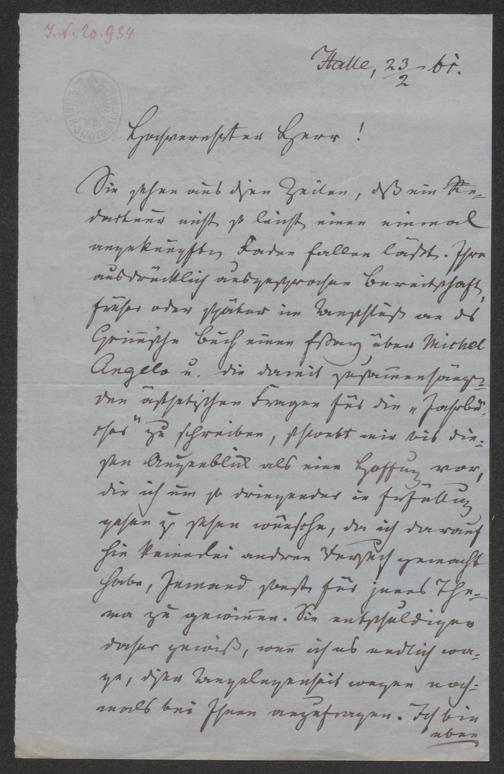 J.N. 20.934
Halle, 23/2 61.
Hochverehrter Herr!
Sie sehen aus diesen Zeilen, daß ein Re-
dacteur nicht so leicht einen einmal
angeknüpften Faden fallen läßt. Ihre
ausdrücklich ausgesprochene Bereitschaft,
früher oder später im Anschluß an das
Grimm'sche Buch einen Essay über Michel
Angelo u. die damit zusammenhängen-
den ästhetischen Fragen für die "Jahrbü-
cher" zu schreiben, schwebt mir bis die-
sen Augenblick als eine Hoffnung vor,
die ich um so dringender in Erfüllung
gehen zu sehen wünsche, da ich darauf
hin keinerlei andren Versuch gemacht
habe, Jemand sonst für jenes The-
ma zu gewinnen. Sie entschuldigen
daher gewiß, wenn ich es endlich wa-
ge, dieser Angelegenheit wegen noch-
mals bei Ihnen anzufragen. Ich bin
eben